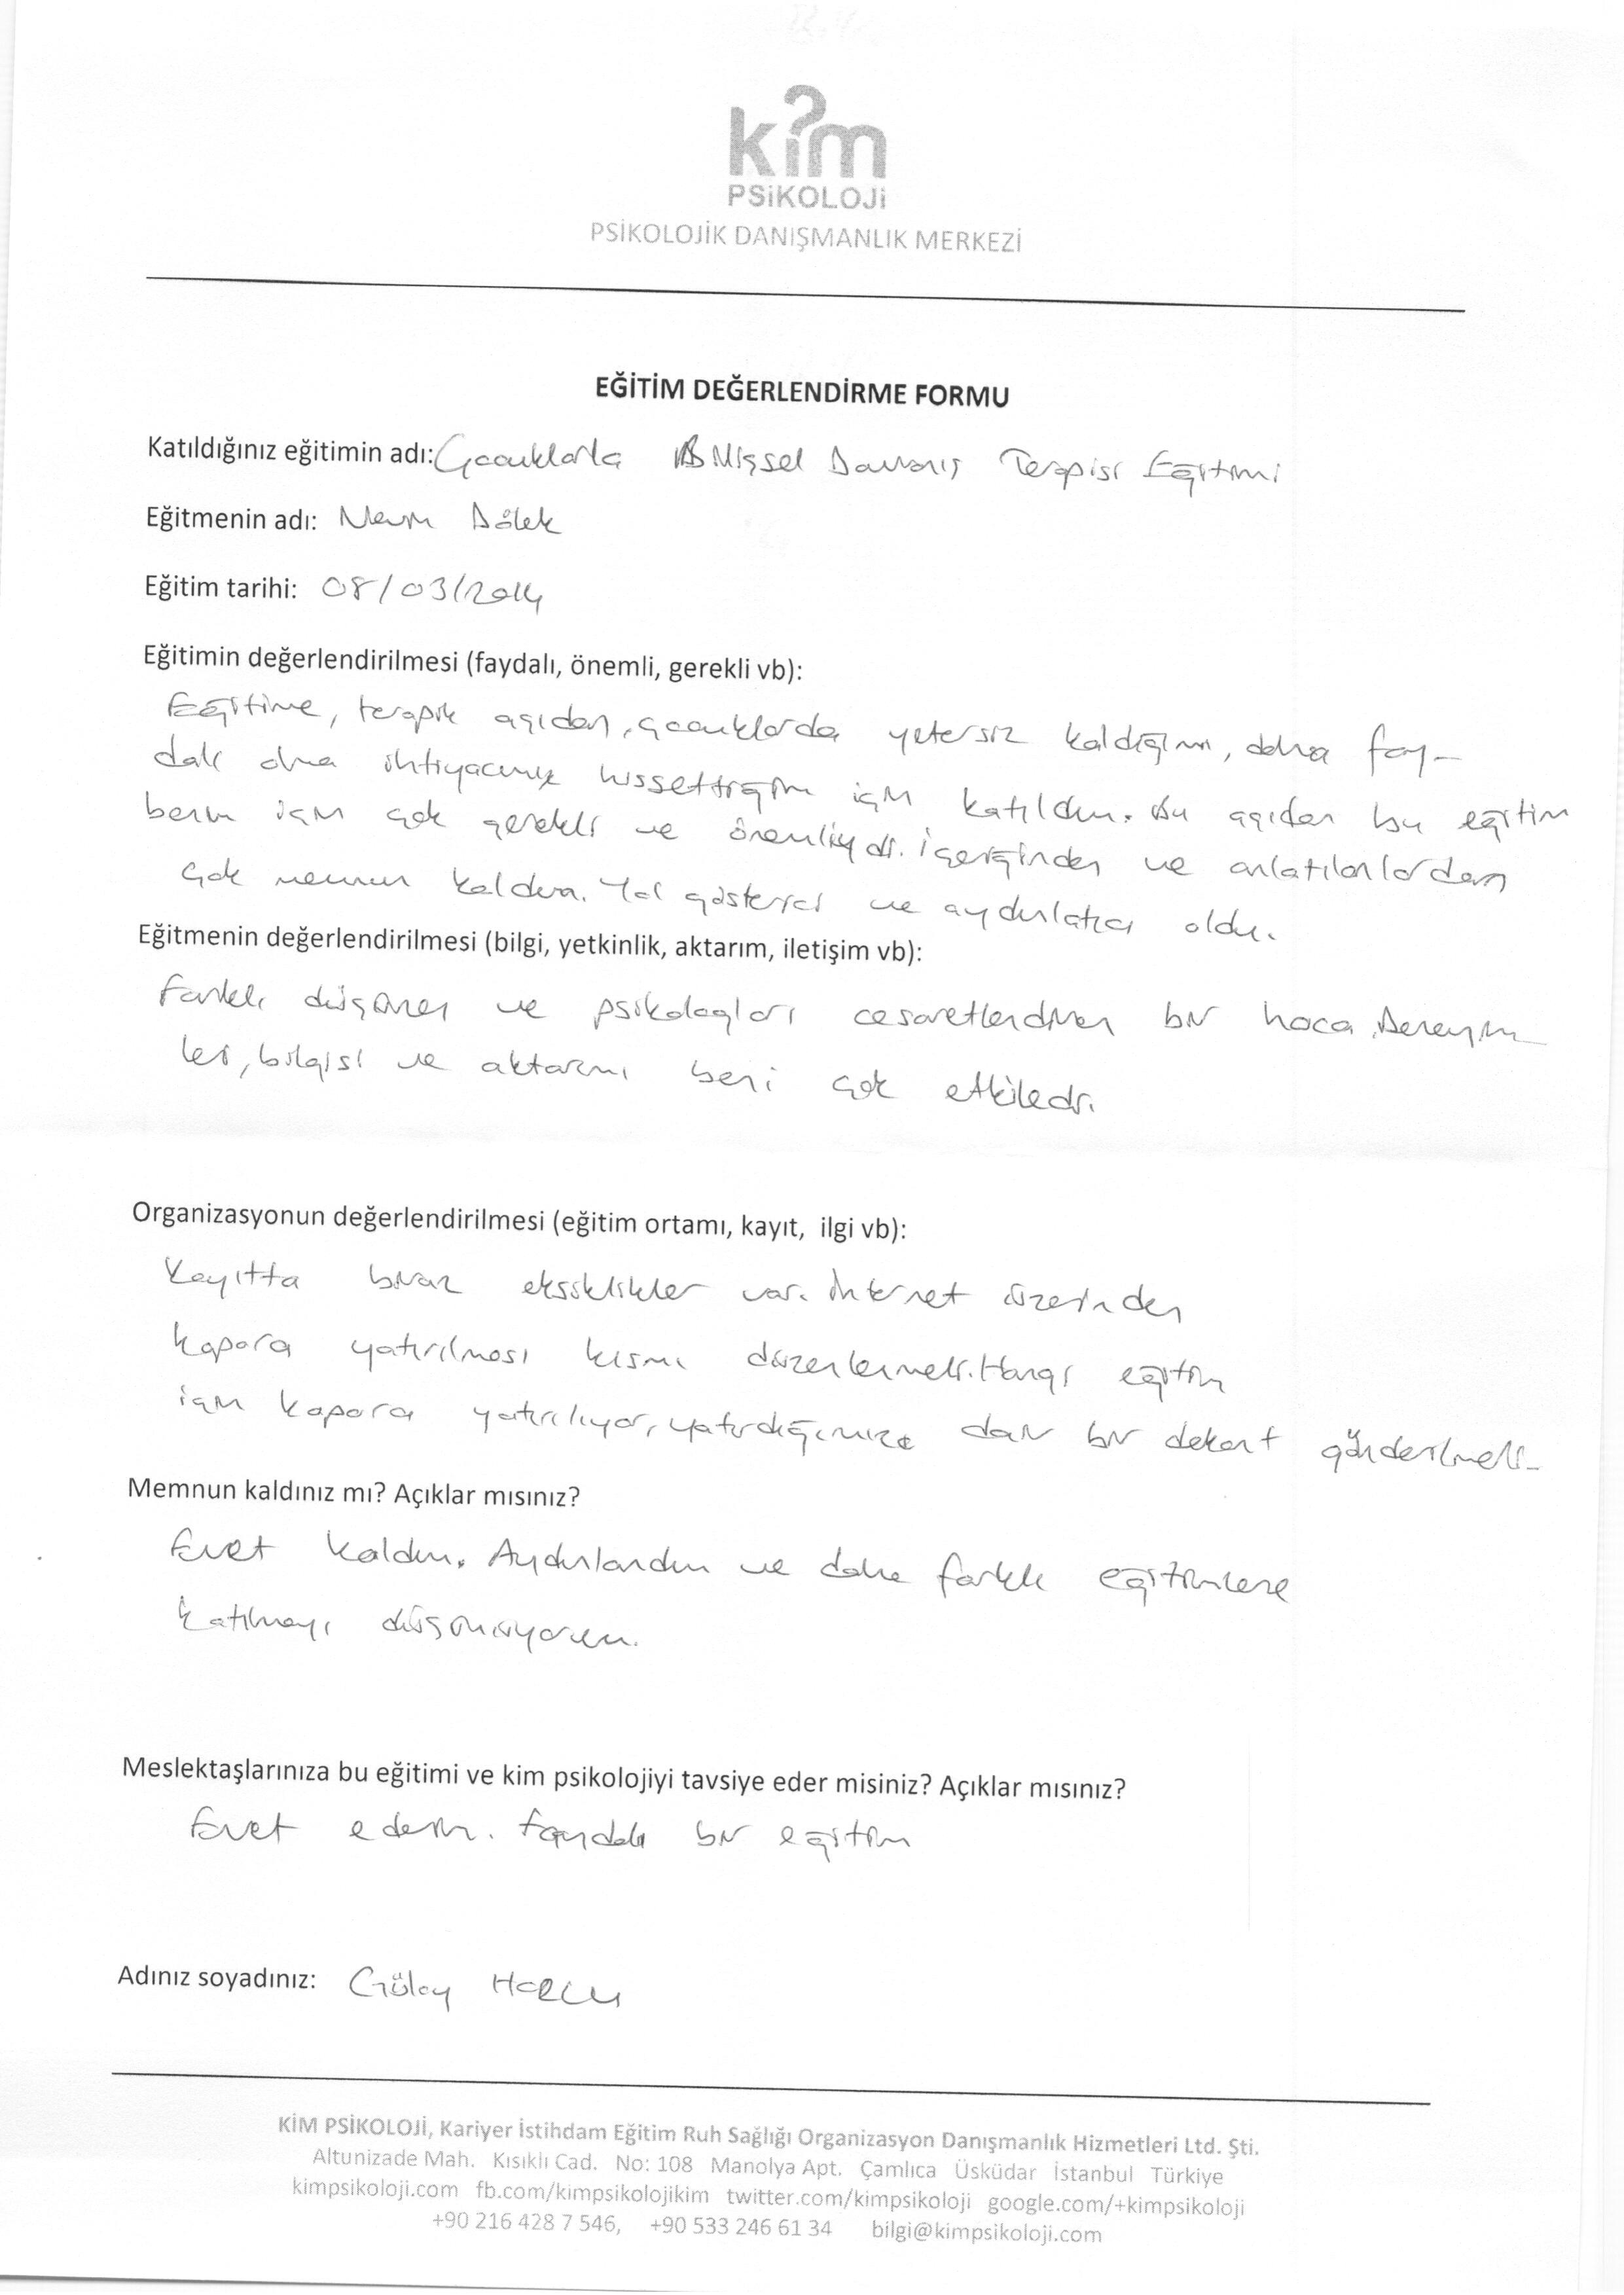 kim
PSiKOLOJi
PSİKOLOJİK DANIŞMANLIK MERKEZİ
EĞİTİM DEĞERLENDİRME FORMU
Katıldığınız eğitimin adı: Çocuklarla Bilişsel Davranış Terapisi Eğitimi
Eğitmenin adı: Nevin Dölek
Eğitim tarihi: 08/03/2014
Eğitimin değerlendirilmesi (faydalı, önemli, gerekli vb):
Eğitime, terapik açıdan, çocuklarda yetersiz kaldığımı, daha fay-
dalı olma ihtiyacımız hissettiğim için katıldım. Bu açıdan bu eğitim
benim için çok gerekli ve önemliydi. İçeriğinden ve anlatılanlardan
çok memnun kaldım. Yol gösterici ve aydınlatıcı oldu.
Eğitmenin değerlendirilmesi (bilgi, yetkinlik, aktarım, iletişim vb):
Farklı düşünen ve psikologları cesaretlendiren bir hoca. Deneyim
leri, bilgisi ve aktarımı beni çok etkiledi.
Organizasyonun değerlendirilmesi (eğitim ortamı, kayıt, ilgi vb):
Kayıtta biraz eksiklikler var. İnternet üzerinden
kapora yatırılması kısmı düzenlenmeli. Hangi eğitim
için kapora yatırılıyor, yatırdığımıza dair bir dekont gönderilmeli.
Memnun kaldınız mı? Açıklar mısınız?
Evet kaldım. Aydınlandım ve daha farklı eğitimlere
katılmayı düşünüyorum.
Meslektaşlarınıza bu eğitimi ve kim psikolojiyi tavsiye eder misiniz? Açıklar mısınız?
Evet ederim. Faydalı bir eğitim
Adınız soyadınız: Gülay
KİM PSİKOLOJİ, Kariyer İstihdam Eğitim Ruh Sağlığı Organizasyon Danışmanlık Hizmetleri Ltd. Şti.
Altunizade Mah. Kısıklı Cad. No: 108 Manolya Apt. Çamlıca Üsküdar İstanbul Türkiye
kimpsikoloji.com fb.com/kimpsikolojikim twitter.com/kimpsikoloji google.com/+kimpsikoloji
+90 216 428 7 546, +90 533 246 61 34 bilgi@kimpsikoloji.com